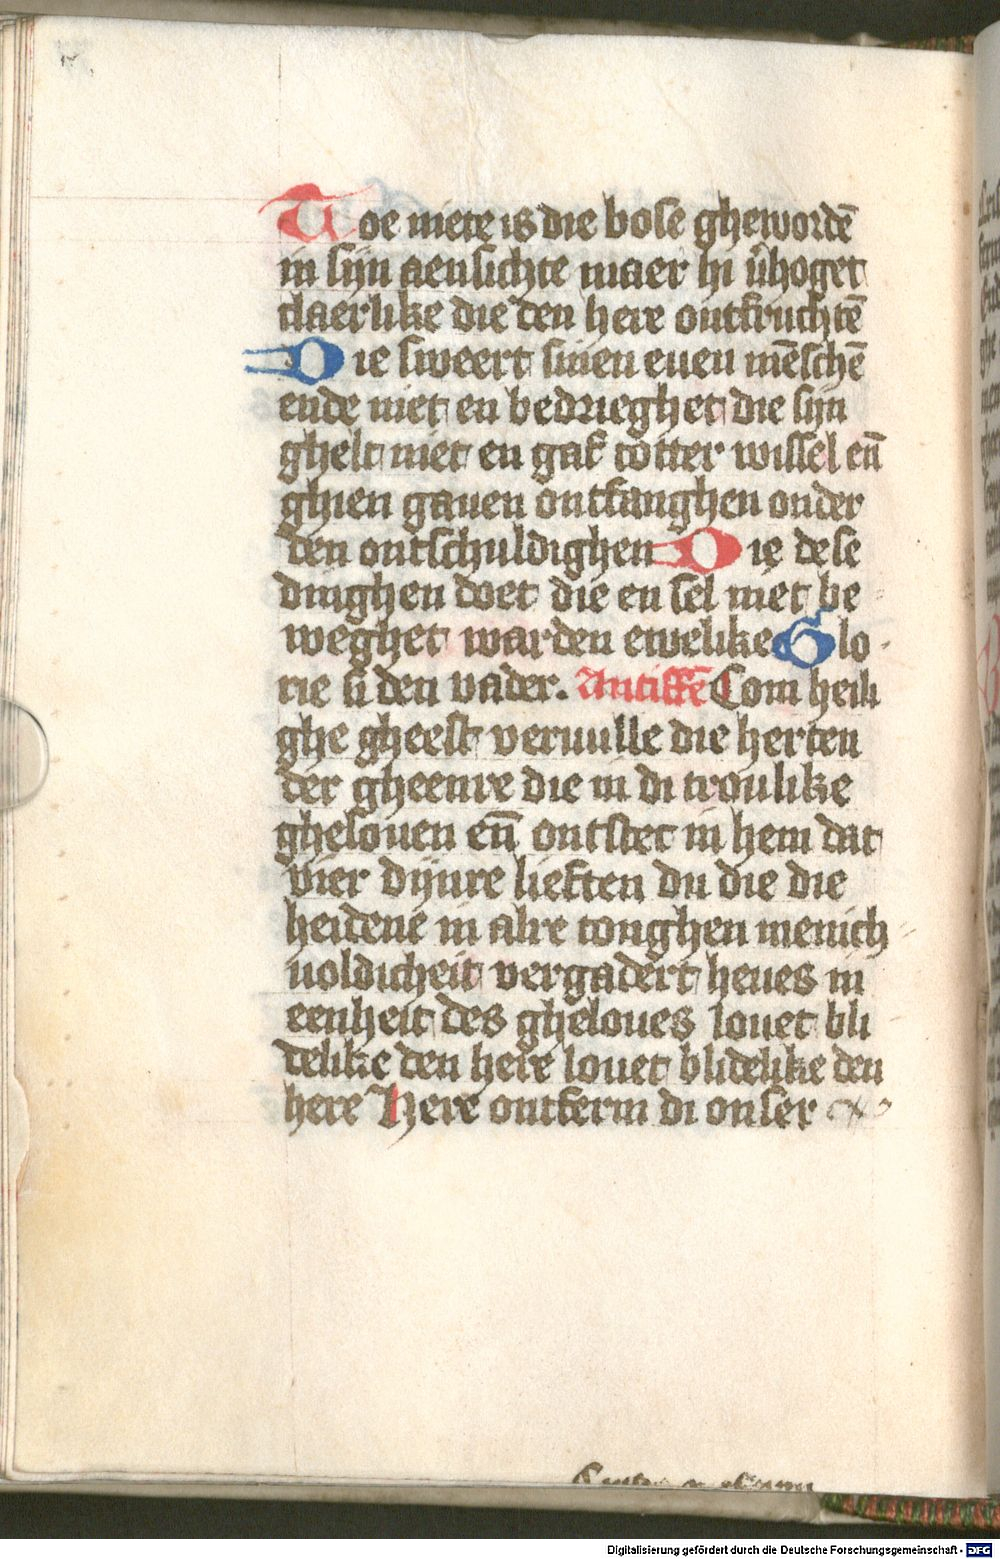 Toe niete is die bose ghewordē
in sijn aensichte maer hi v̄hoget
claerlike die den here ontfruchtē
Die sweert sinen euen mēschē
ende niet en bedrieghet die sijn
ghelt niet en gaf totter wissel en̄
ghien gauen ontfanghen onder
den ontschuldighen Die dese
dinghen doet die en sel niet be
weghet warden ewelike Glo
rie si den vader. Antiffē Com heili
ghe gheest veruulle die herten
der gheenre die in di troulike
ghelouen en̄ ontstec in hem dat
vier dijnre lieften Du die die
heidene in alre tonghen menich
uoldicheit vergadert heues in
eenheit des gheloues louet bli
delike den here louet blidelike den
here Here ontferm di onser
Digitalisierung gefördert durch die Deutsche Forschungsgemeinschaft - DFG